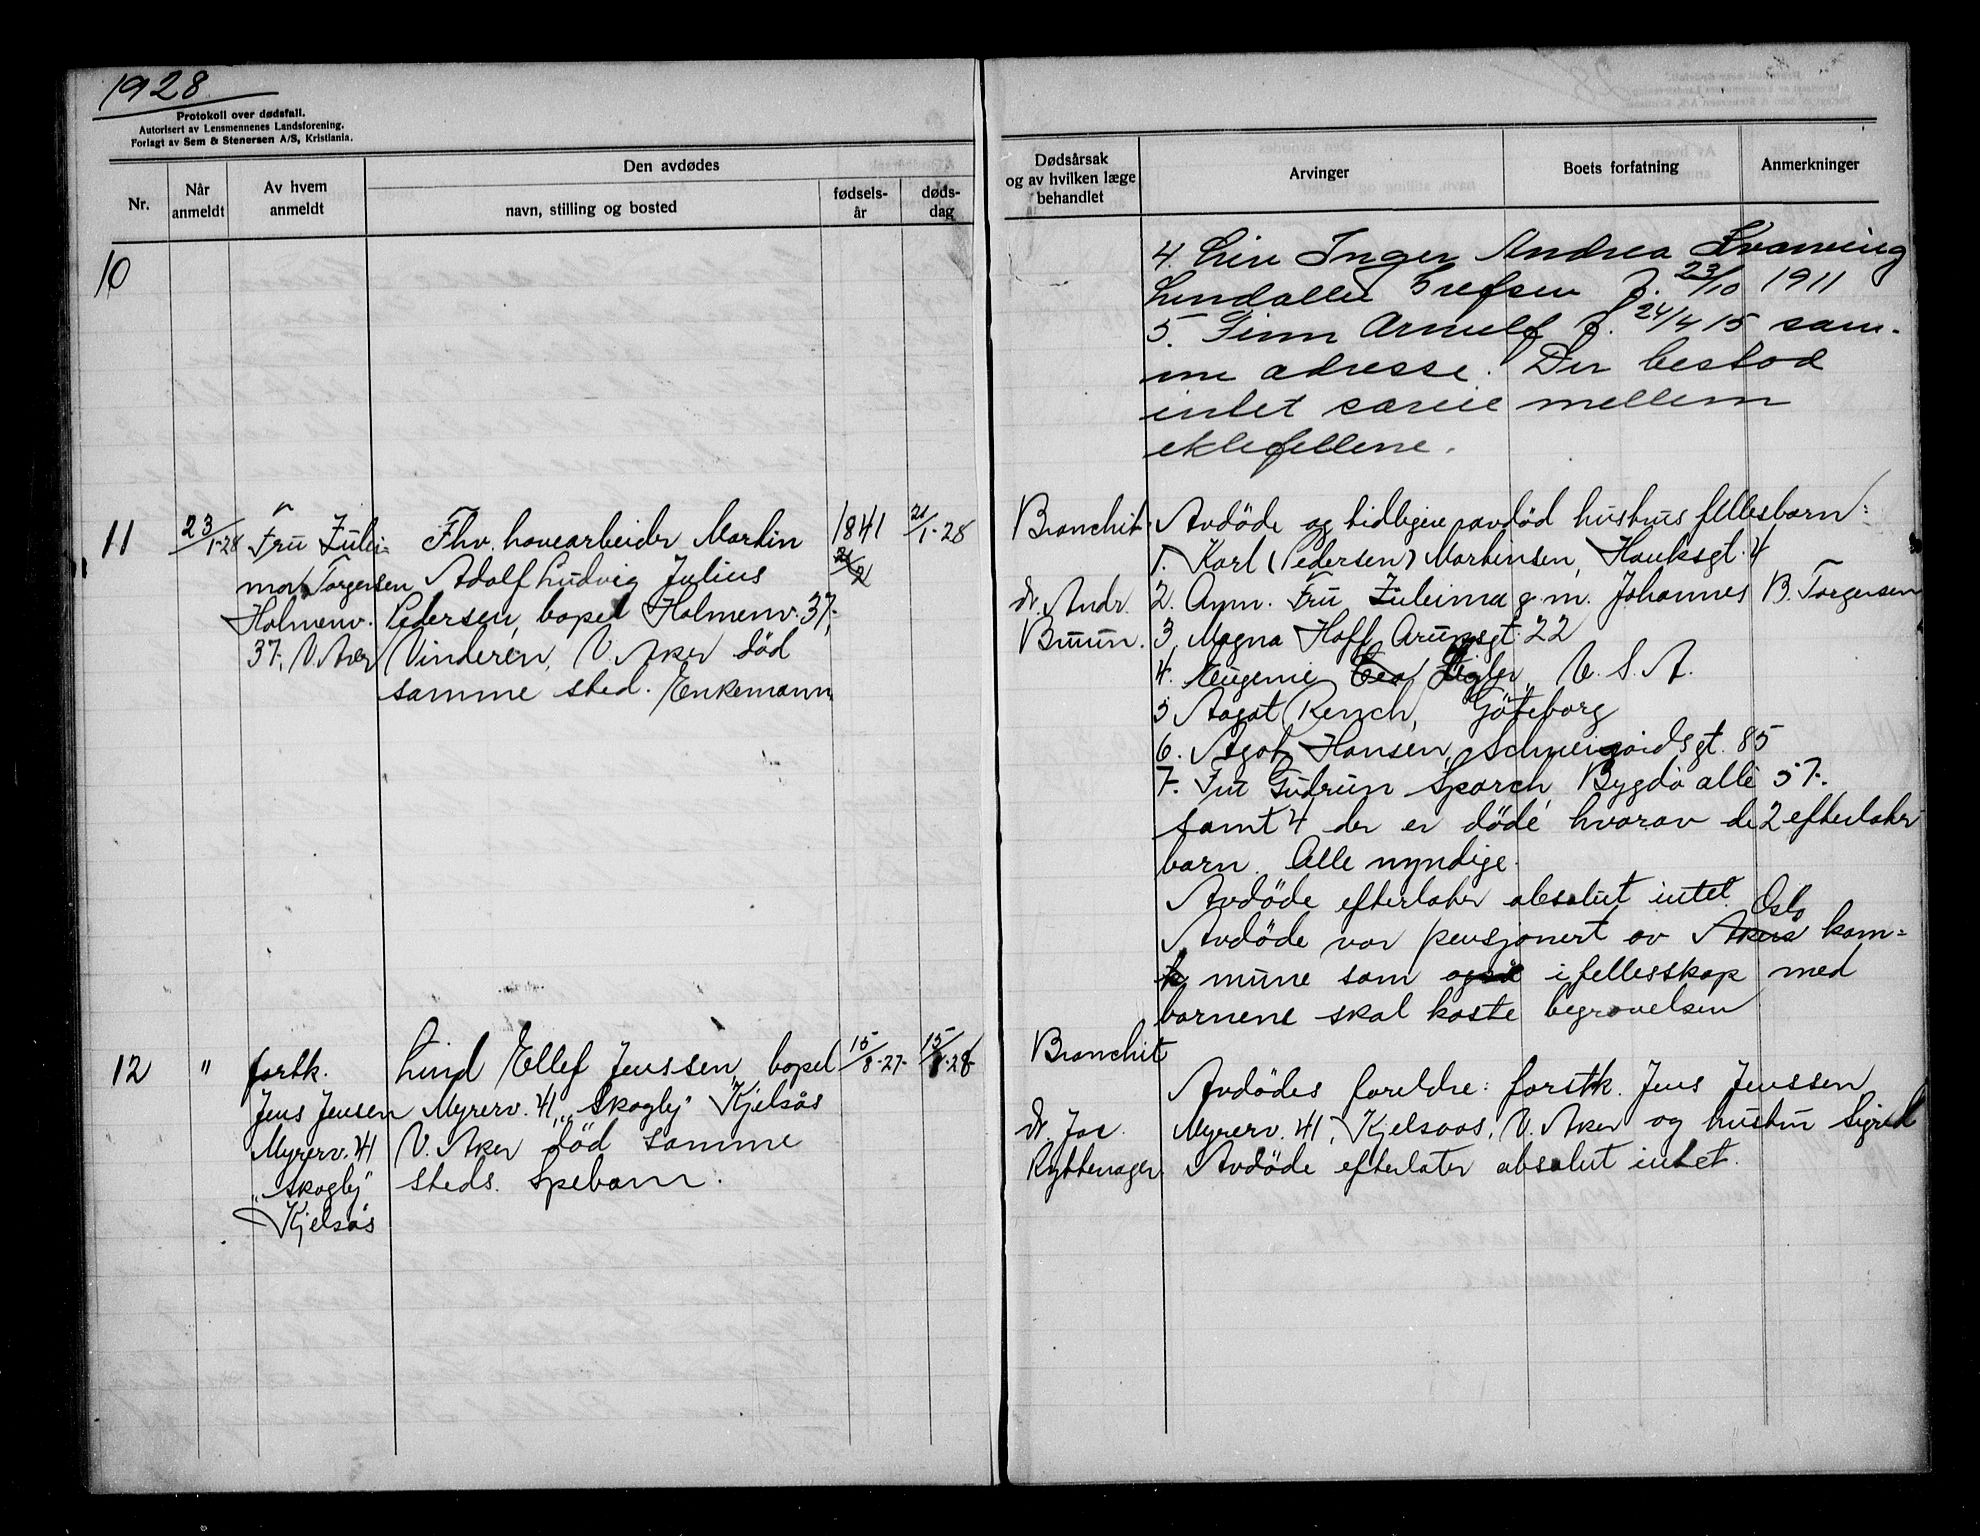 1928
Protokoll over dødsfall.
Autorisert av Lensmennenes Landsforening.
Forlagt av Sem & Stenersen A/S, Kristiania.
Nr.
Når anmeldt
Av hvem anmeldt
Den avdødes
navn, stilling og bosted
fødsels-år
døds-dag
Dødsårsak og av hvilken læge behandlet
Arvinger
Boets forfatning
Anmerkninger
10
4. Liv Inger Andrea
Lindallee Grefsen f. 23/10 1911
5. Finn Arnulf f. 24/4 15 sam-
me adresse. Der bestod
intet særeie mellem
ektefellene.
11
23/1-28
Fru Zulei-
ma Torgersen
Holmenv.
37, V. Aker
Fhv. havearbeider Martin
Adolf Ludvig Julius
Pedersen, bopel Holmenv. 37,
Vinderen, V. Aker död
samme sted. Enkemann
1841
21/2
21/1-28
Bronchit
dr. Andr.
Bruun.
Avdöde og tidligere avdöd hustrus fellesbarn:
1. Karl (Pedersen) Martinsen, Hauksgt. 4
2. Anm. Fru Zuleima g.m. Johannes B. Torgersen
3. Magna Hoff, Arupsgt. 22
4. Eugenie Zigler, U.S.A.
5 Aagot Rensch, Göteborg
6. Agot Hansen, Schweigårdsgt. 85
7. Fru Gudrun Sparch, Bygdö allé 57.
samt 4 der er döde hvorav de 2 efterlater
barn. Alle myndige.
Avdöde efterlater absolut intet.
Oslo
Avdöde var pensjonert av Akers kom=
mune som også i fellesskap med
barnene skal koste begravelsen
12
"
fortk.
Jens Jensen
Myrerv. 41
"Skogly"
Kjelsås
Lind Ellef Jenssen, bopel
Myrerv. 41, "Skogly" Kjelsås
V. Aker död samme
steds. Spebarn.
15/8-27-
15/1-28-
Bronchit
dr. Jac.
Rytterager
Avdödes foreldre: forstk. Jens Jenssen
Myrerv. 41, Kjelsaas, V. Aker og hustru Sigrid
Avdöde efterlater absolut intet.